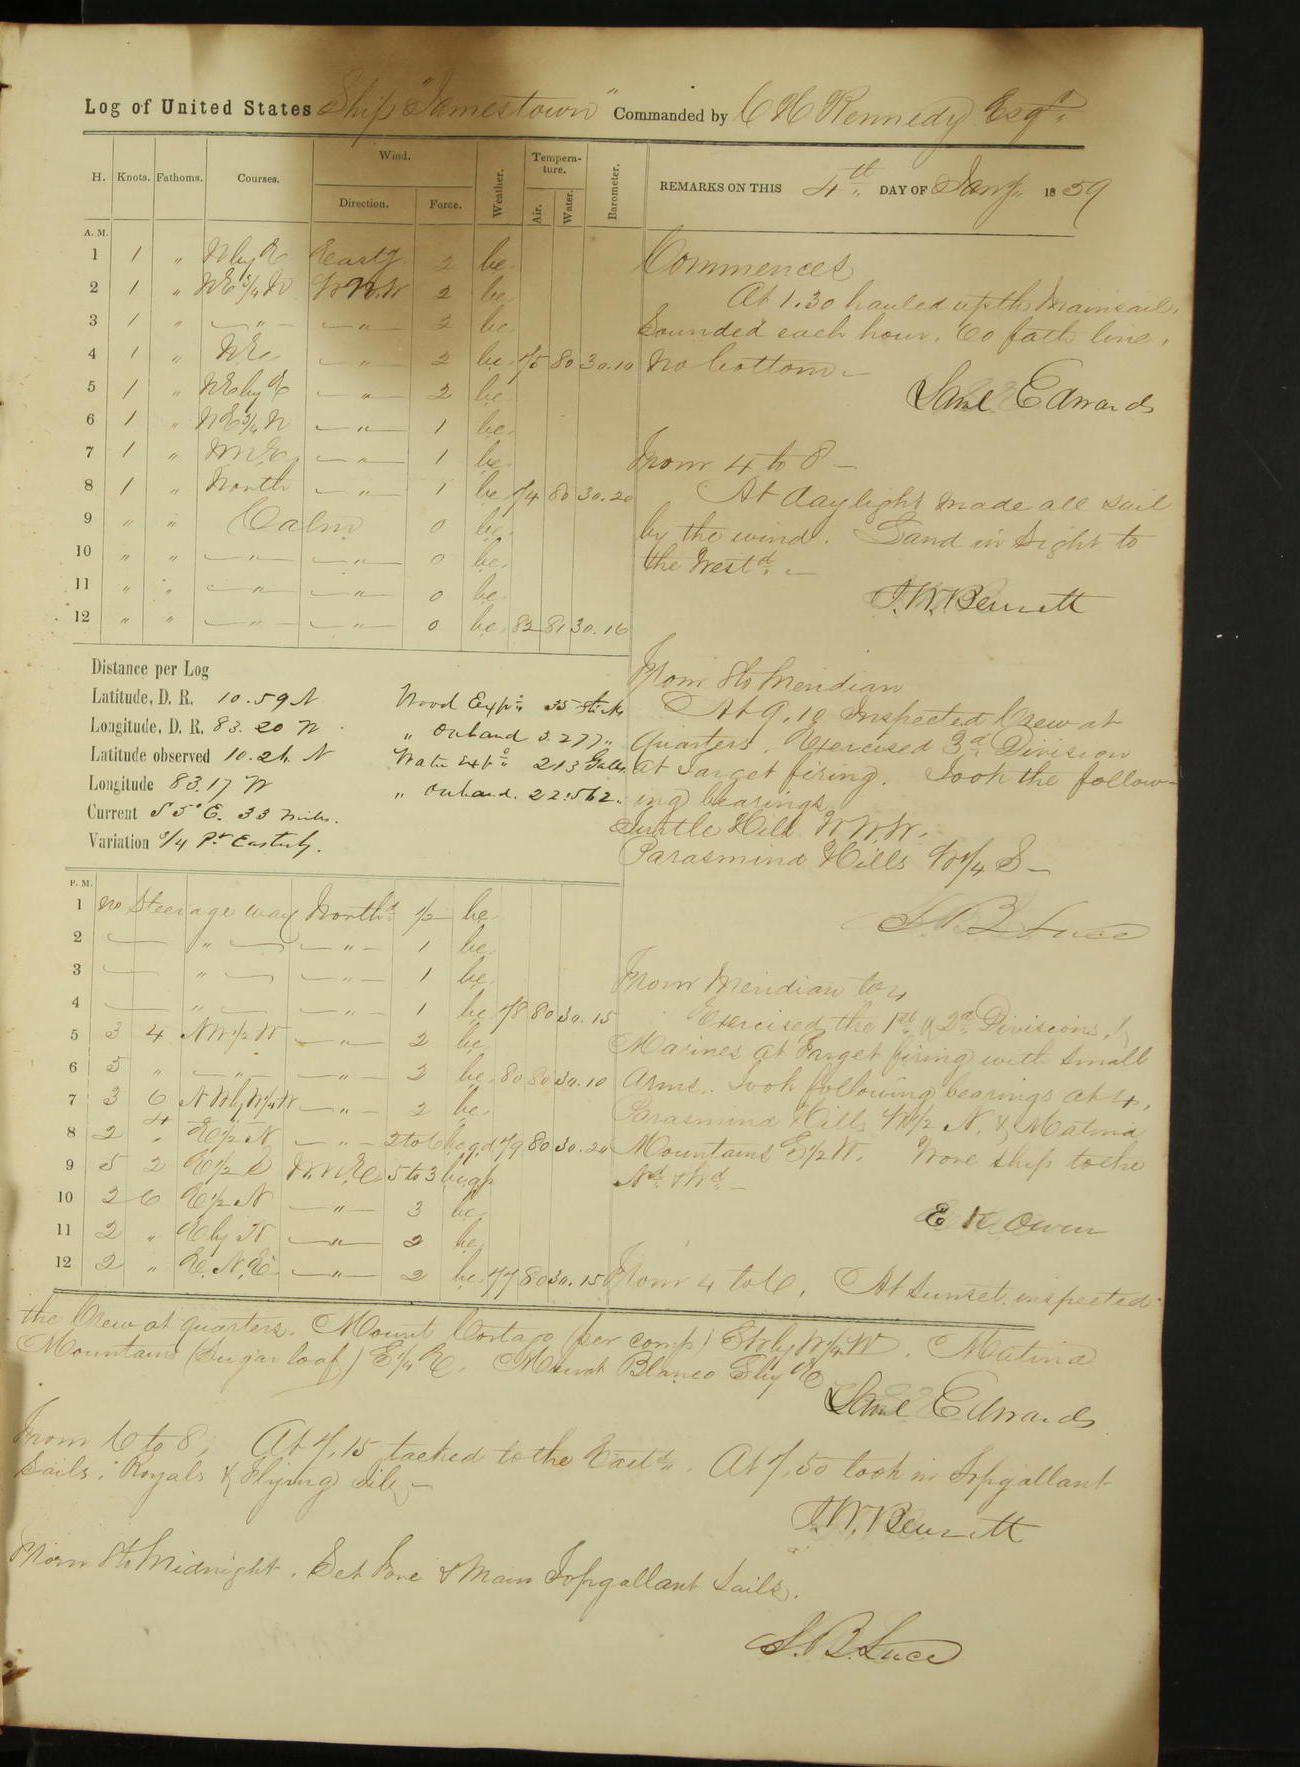 Log of United States Ship "Jamestown" Commanded by C H Kennedy Esqr.
H. Knots. Fathoms. Courses. Wind. Direction. Force. Weather. Temperature. Air. Water. Barometer.
REMARKS ON THIS 4th DAY OF Jany 1859
A. M.
1 1 " N by E Eastd. 2 bc.
2 1 " NE 3/4 N W N.W 2 bc
3 1 " — " — — " — 2 bc
4 1 " NE. — " — 2 bc. 75 80 30.10
5 1 " NE by E — " — 2 bc.
6 1 " NE 3/4 N — " — 1 bc.
7 1 " NNE. — " — 1 bc.
8 1 " North — " — 1 bc 74 80 30.20
9 " " Calm 0 bc.
10 " " — " — — " — 0 bc.
11 " " — " — — " — 0 bc.
12 " " — " — — " — 0 bc. 82 81 30.16
Commences
At 1.30 hauled up the Mainsail.
Sounded each hour. 60 fath line,
no bottom. —
Saml Edwards
From 4 to 8 —
At daylight made all sail
by the wind. Land in sight to
the Westd. —
J.W. Bennett
From 8 to Meridian
At 9.10 Inspected Crew at
quarters. Exercised 3d Division
at Target firing. Took the follow-
ing bearings
Turtle Hill W.N.W.
Parasmind Hills W 1/4 S —
S. B. Luce
Distance per Log
Latitude, D. R. 10.59 N
Longitude, D. R. 83.20 W.
Latitude observed 10.26 N
Longitude 83.17 W
Current S 5° E. 33 miles.
Variation 3/4 Pt Easterly.
Wood Expd. 35 sticks
" On hand 3.277 "
Water Expd. 213 Galls.
" On hand. 22.562 "
P. M.
1 no Steerage way Northd 1/2 bc
2 — " — — " — 1 bc.
3 — " — — " — 1 bc.
4 — " — — " — 1 bc 78 80 30.15
5 3 4 NW 1/2 W — " — 2 bc
6 5 " — " — — " — 2 bc. 80 80 30.10
7 3 6 N W by W 1/4 W — " — 2 bc.
8 2 4 E 1/2 N — " — 2 to 6 bc.q.d 79 80 30.20
9 5 2 E 1/2 S N.N.E. 5 to 3 bc.qp
10 2 6 E 1/2 N — " — 3 bc.
11 2 " E by N — " — 2 bc.
12 2 " E.N.E. — " — 2 bc. 77 80 30.15
From Meridian to 4
Exercised the 1st & 2d Divisions, &
Marines at Target firing with small
arms. Took following bearings at 4.
Parasmind Hills W 1/2 N. & Matina
Mountains S 1/2 W. Wore ship to the
Nd & Wd —
E K Owen
From 4 to 6. At Sunset inspected
the Crew at quarters. Mount Cortago (per comp) S W by W 1/4 W. Matina
Mountains (Sugar loaf) S 1/4 E. Mount Blanco S by E
Saml Edwards
From 6 to 8. At 7.15 tacked to the Eastd. At 7.50 took in Topgallant
Sails, Royals & Flying Jib —
J.W. Bennett
From 8 to Midnight. Set Fore & Main Topgallant Sails.
S. B. Luce